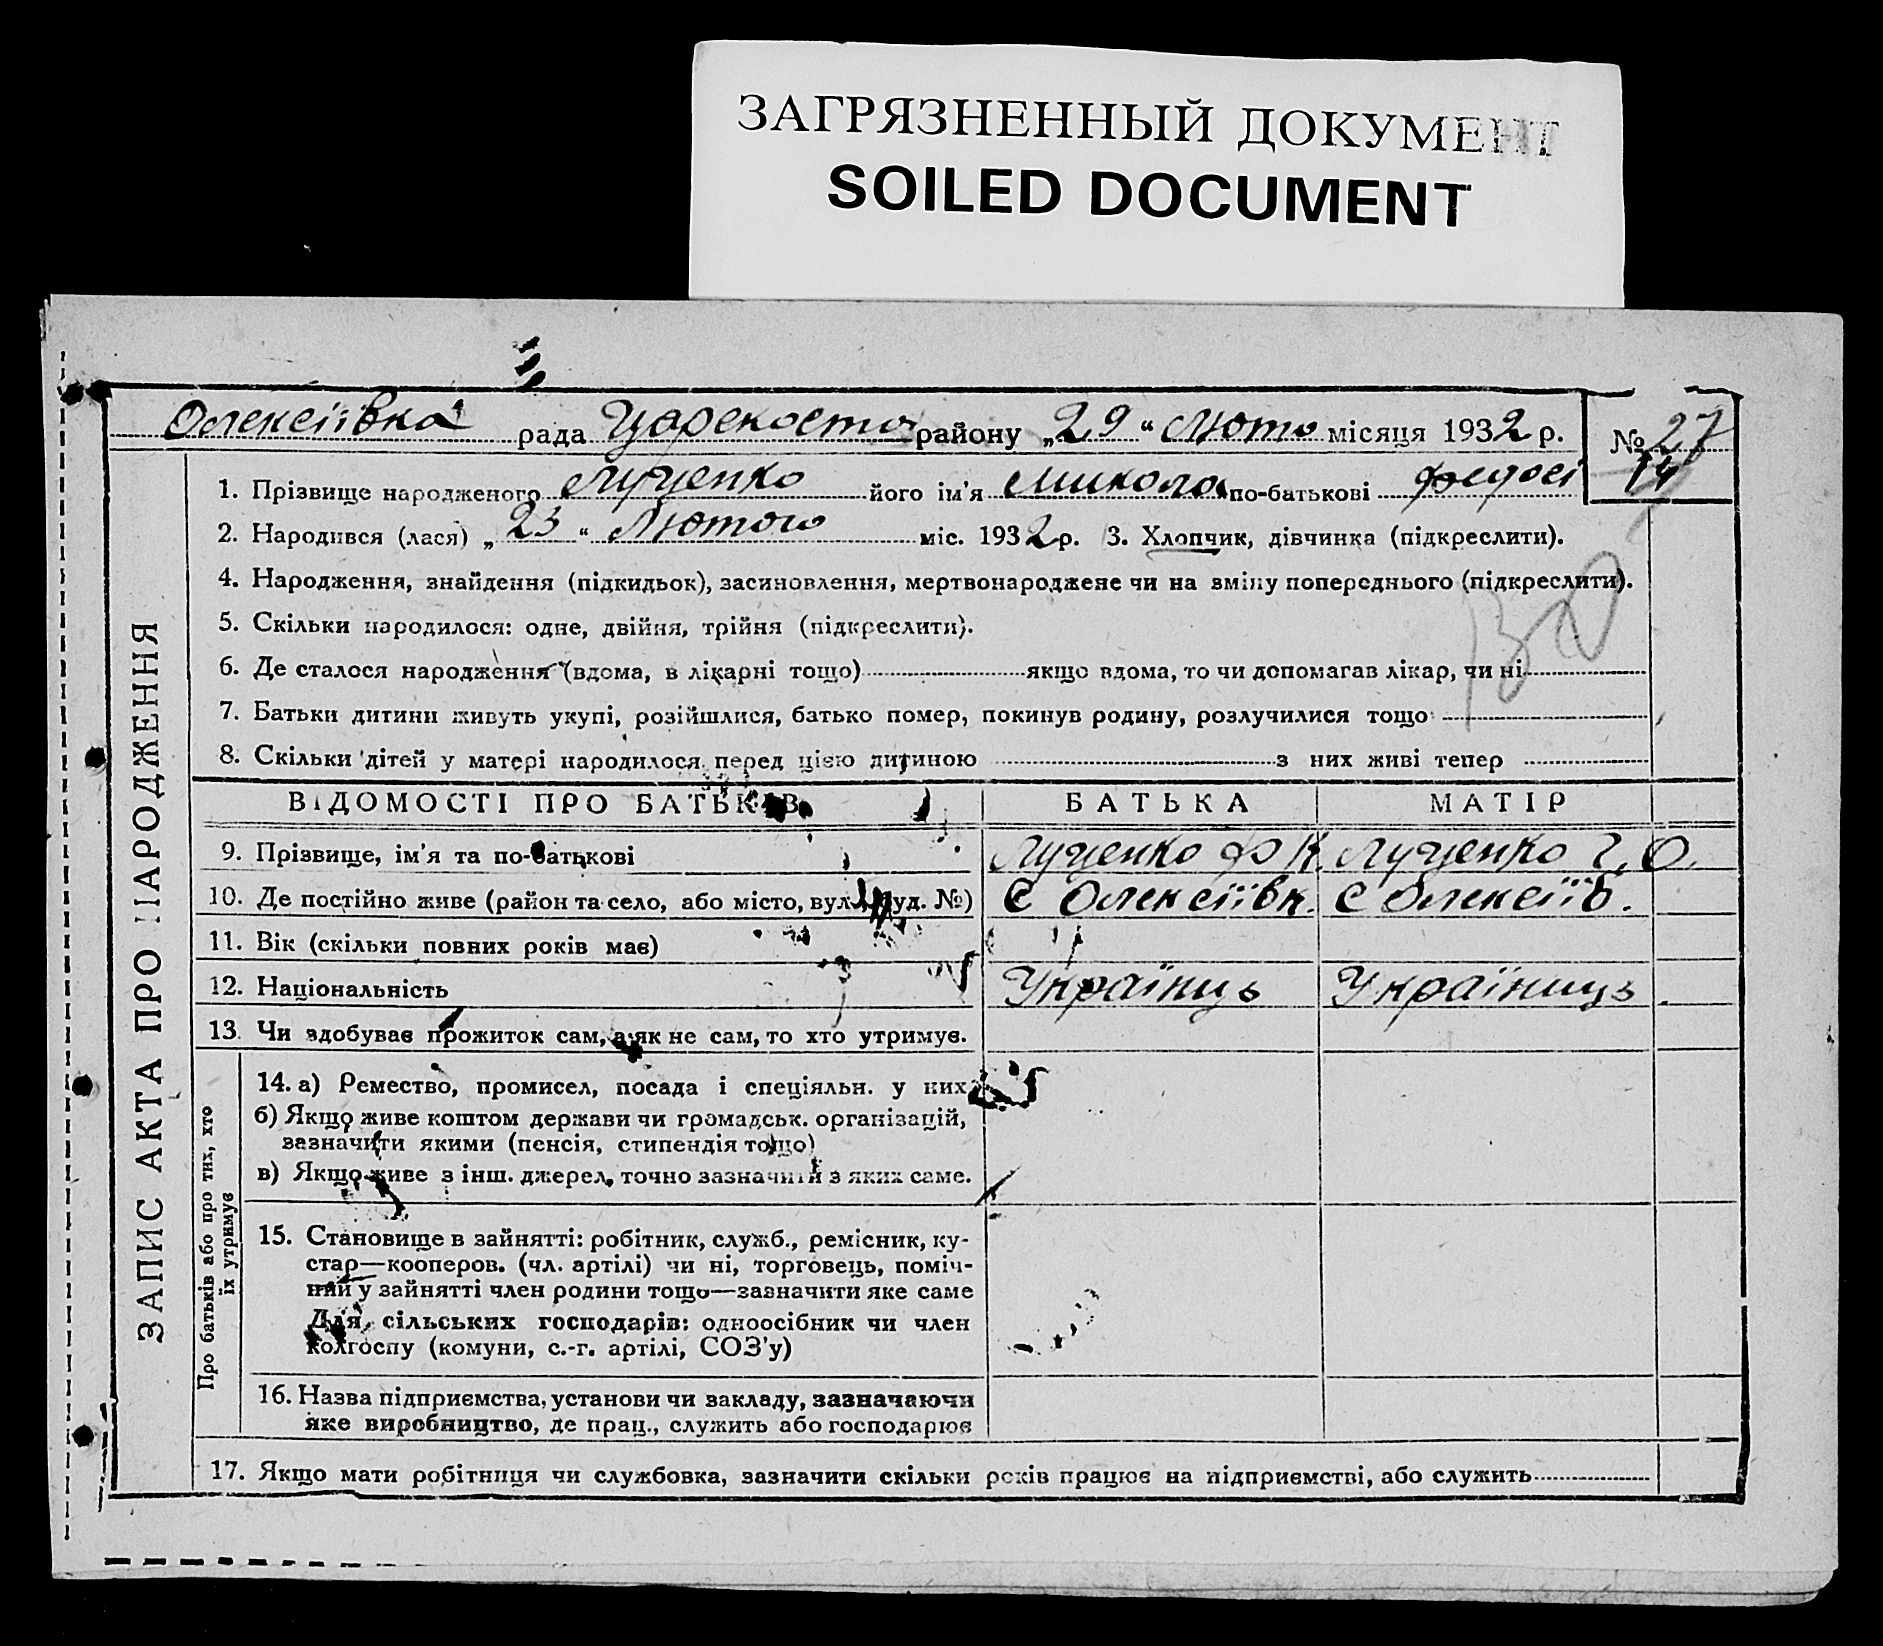 ЗАГРЯЗНЕННЫЙ ДОКУМЕНТ
SOILED DOCUMENT
Олексіївка рада Царекоста району „29“ Люто місяця 1932 р. № 27
14
1. Прізвище народженого Луценко його ім'я Микола по-батькові Федосі
2. Народився (лася) „23“ Лютого міс. 1932 р. 3. Хлопчик, дівчинка (підкреслити).
4. Народження, знайдення (підкидьок), засиновлення, мертвонароджене чи на зміну попереднього (підкреслити).
5. Скільки народилося: одне, двійня, трійня (підкреслити).
6. Де сталося народження (вдома, в лікарні тощо) якщо вдома, то чи допомагав лікар, чи ні
7. Батьки дитини живуть укупі, розійшлися, батько помер, покинув родину, розлучилися тощо
8. Скільки дітей у матері народилося перед цією дитиною з них живі тепер
ЗАПИС АКТА ПРО НАРОДЖЕННЯ
ВІДОМОСТІ ПРО БАТЬКІВ БАТЬКА МАТІР
9. Прізвище, ім'я та по-батькові Луценко Ф К. Луценко Г. О.
10. Де постійно живе (район та село, або місто, вул., буд. №) С Олексіївк. С Олексіїв.
11. Вік (скільки повних років має)
12. Національність Українць Україниць
13. Чи здобуває прожиток сам, а як не сам, то хто утримує.
Про батьків або про тих, хто
їх утримує
14. а) Ремество, промисел, посада і спеціяльн. у них
б) Якщо живе коштом держави чи громадськ. організацій,
зазначити якими (пенсія, стипендія тощо)
в) Якщо живе з інш. джерел, точно зазначити з яких саме.
15. Становище в зайнятті: робітник, служб., ремісник, ку-
стар—кооперов. (чл. артілі) чи ні, торговець, поміч-
ний у зайнятті член родини тощо—зазначити яке саме
Для сільських господарів: одноосібник чи член
колгоспу (комуни, с.-г. артілі, СОЗ'у)
16. Назва підприємства, установи чи закладу, зазначаючи
яке виробництво, де прац., служить або господарює
17. Якщо мати робітниця чи службовка, зазначити скільки років працює на підприємстві, або служить